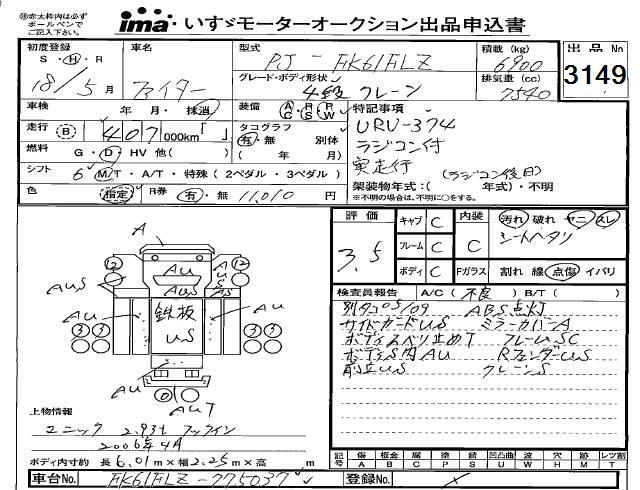 ※赤太枠内は必ず
ボールペンで
ご記入下さい。
ima いすゞモーターオークション出品申込書
初度登録 S・H・R 18/5月
車名 ファイター
型式 PJ-FK61FLZ
積載(kg) 6900
グレード・ボディ形状 4段 クレーン
排気量(cc) 7540
出品No. 3149
車検 年・月・抹消
装備 AC PS PW
走行 B 407,000km「 」
タコグラフ 有・無 別体 ( 年 月)
燃料 G・D・HV 他( )
シフト 6 M/T・A/T・特殊(2ペダル・3ペダル)
色 指定 R券 有・無 11,010円
特記事項
URV-374
ラジコン付
実走行
(ラジコン後日)
架装物年式:( 年式)・不明
※不明の場合は、不明に○をする。
評価 3.5
キャブ C 内装 C 汚れ 破れ ヤニ スレ
シートヘタリ
フレーム C
ボディ C Fガラス 割れ 線 点傷 イバリ
検査員報告 A/C(不良)B/T( )
別タコ05/09 ABS点灯
サイドガードUS ミラーカバーA
ボディスベリ止めT フレームSC
ボディS内AU RフェンダーUS
前立US クレーンS
A
12 12
AU
AUS
AUS
AUS
AU
AU
鉄板
US
3 3 3 3
AU
AU
AUT
上物情報
ユニック 2.93t フックイン
2006年4月
ボディ内寸約 長 6.01m×幅 2.25m×高 m
記号 傷 板金 腐 塗 錆 凹凸曲 ワ 穴 跡 レツ割
A B C P S U W H M T
車台No. FK61FLZ-775037
登録No.